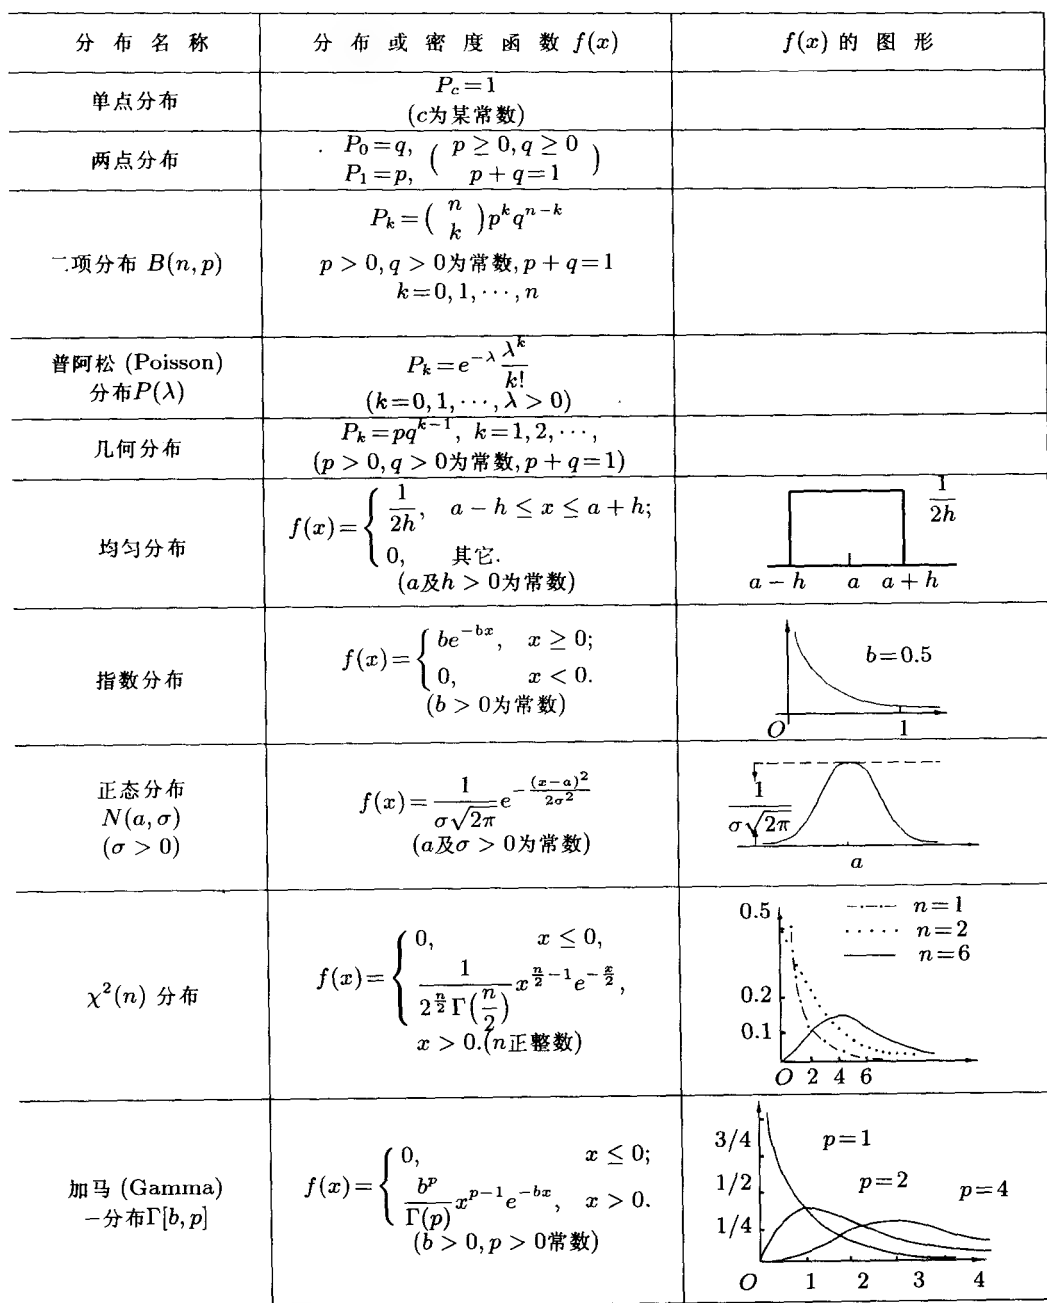 分布名称 分布或密度函数 f(x) f(x) 的图形
单点分布
P_c=1
(c为某常数)
两点分布
P_0=q, ( p ≥ 0, q ≥ 0
P_1=p, p + q=1 )
二项分布 B(n, p)
P_k=( n k )p^k q^{n-k}
p > 0, q > 0为常数, p + q=1
k=0, 1, ···, n
普阿松 (Poisson)
分布P(λ)
P_k=e^{-λ} λ^k/k!
(k=0, 1, ···, λ > 0)
几何分布
P_k=pq^{k-1}, k=1, 2, ···,
(p > 0, q > 0为常数, p + q=1)
均匀分布
f(x)={ 1/2h, a − h ≤ x ≤ a + h;
0, 其它.
(a及h > 0为常数)
1/2h
a − h a a + h
指数分布
f(x)={ be^{-bx}, x ≥ 0;
0, x < 0.
(b > 0为常数)
b=0.5
O 1
正态分布
N(a, σ)
(σ > 0)
f(x)= 1/(σ√2π) e^{-(x-a)^2/2σ^2}
(a及σ > 0为常数)
1/(σ√2π)
a
χ^2(n) 分布
f(x)={ 0, x ≤ 0,
1/(2^{n/2} Γ(n/2)) x^{n/2 -1} e^{-x/2},
x > 0.(n正整数)
0.5 n=1
n=2
n=6
0.2
0.1
O 2 4 6
加马 (Gamma)
一分布Γ[b, p]
f(x)={ 0, x ≤ 0;
b^p/Γ(p) x^{p-1} e^{-bx}, x > 0.
(b > 0, p > 0常数)
3/4 p=1
1/2 p=2 p=4
1/4
O 1 2 3 4